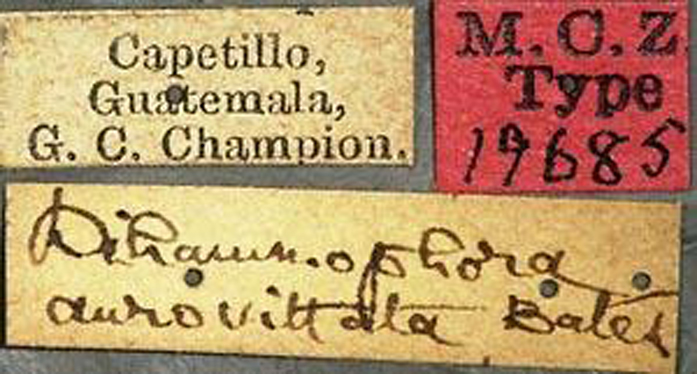 Capetillo,
Guatemala,
G. C. Champion.
M. C. Z.
Type
19685
Dihammophora
aurovittata Bates